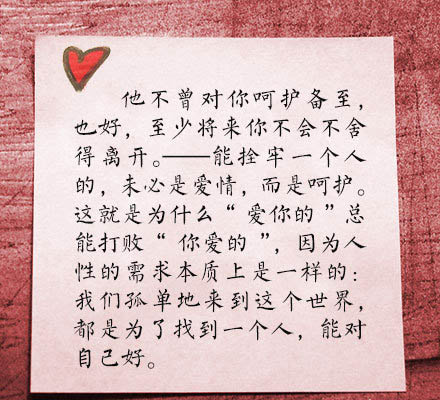 他不曾对你呵护备至，
也好，至少将来你不会不舍
得离开。——能拴牢一个人
的，未必是爱情，而是呵护。
这就是为什么“爱你的”总
能打败“你爱的”，因为人
性的需求本质上是一样的：
我们孤单地来到这个世界，
都是为了找到一个人，能对
自己好。